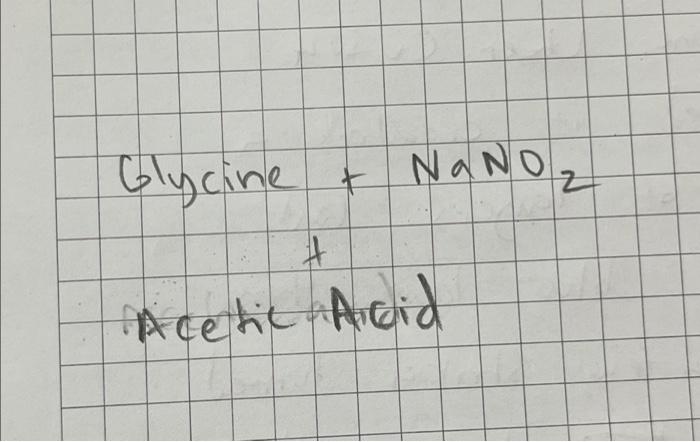 Glycine + NaNO₂
+
Acetic Acid